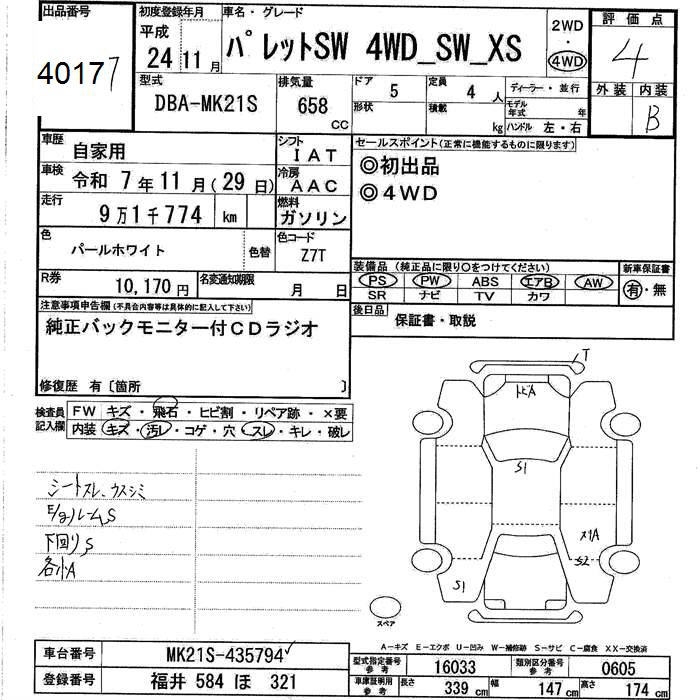 出品番号
40177
初度登録年月
平成
24 11月
車名・グレード
パレットSW 4WD_SW_XS
2WD
・
4WD
評価点
4
外装 内装
B
型式
DBA-MK21S
排気量
658
CC
ドア 5
形状
定員 4 人
積載 kg
ディーラー・並行
モデル年式 年
ハンドル 左・右
車歴 自家用
シフト IAT
車検 令和 7年11月(29日)
冷房 AAC
走行 9万1千774 km
燃料 ガソリン
色 パールホワイト 色替
色コード Z7T
R券 10,170円
名変通知期限 月 日
セールスポイント(正常に機能するものに限ります)
◎初出品
◎4WD
装備品(純正品に限り○をつけてください)
PS PW ABS エアB AW
SR ナビ TV カワ
新車保証書
有・無
後日品 保証書・取説
注意事項申告欄(不具合内容等は具体的に記入して下さい)
純正バックモニター付CDラジオ
修復歴 有〔箇所 〕
検査員記入欄
FW キズ・飛石・ヒビ割・リペア跡・×要
内装 キズ・汚レ・コゲ・穴・スレ・キレ・破レ
シートスレ、ウスシミ
E/gルームS
下回りS
各小A
T
トビA
S1
メリA
S2
S1
スペア
A-キズ E-エクボ U-凹み W-補修跡 S-サビ C-腐食 XX-交換済
車台番号 MK21S-435794
登録番号 福井 584 ほ 321
型式指定番号 参考 16033
類別区分番号 参考 0605
車庫証明用 参考 長さ 339 cm 幅 147 cm 高さ 174 cm